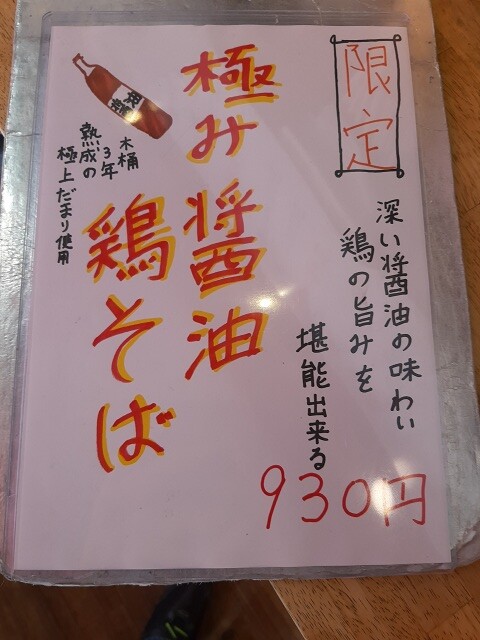 限定
深い醤油の味わい
鶏の旨みを
堪能出来る
930円
極み醤油
鶏そば
木桶
3年
熟成の
極上だまり使用